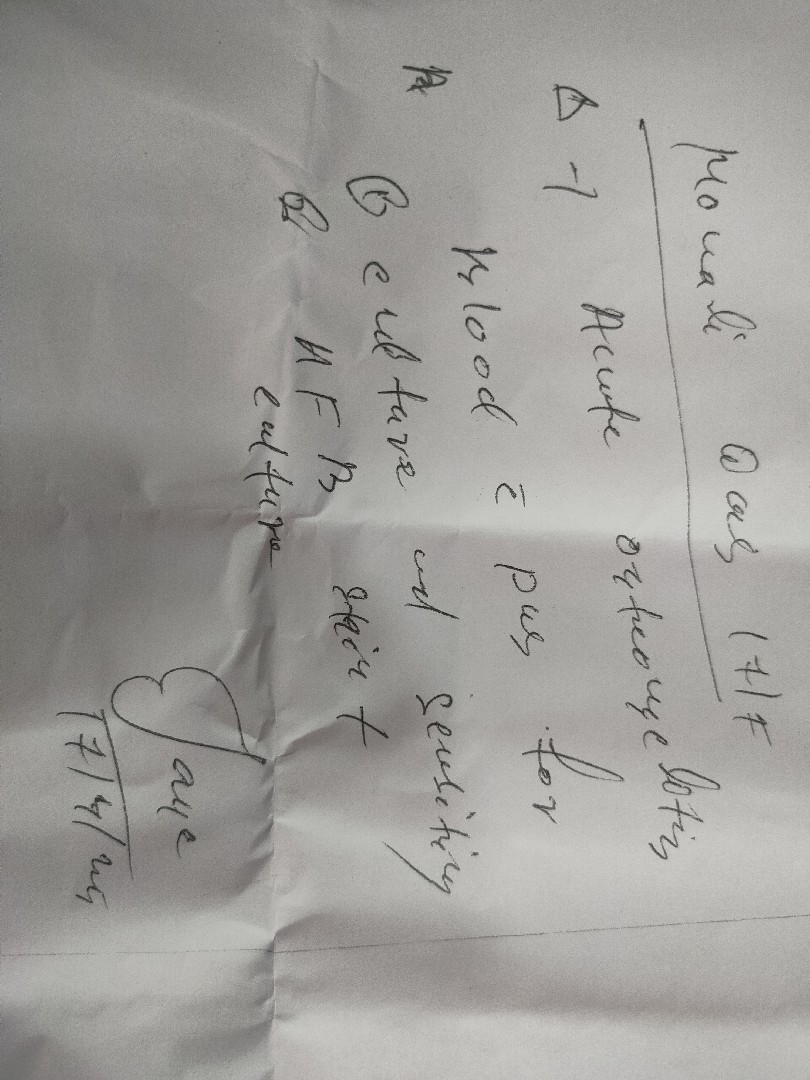 Mouali Das 17/F
Δ -) Acute osteomyelitis
Rx
Blood c̄ pus for
① culture and sensitivity
② AFB stain +
culture